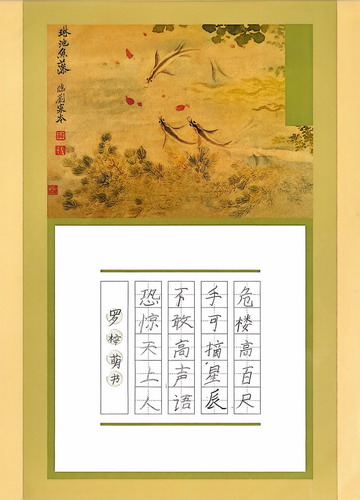 危楼高百尺
手可摘星辰
不敢高声语
恐惊天上人
罗梓萌书